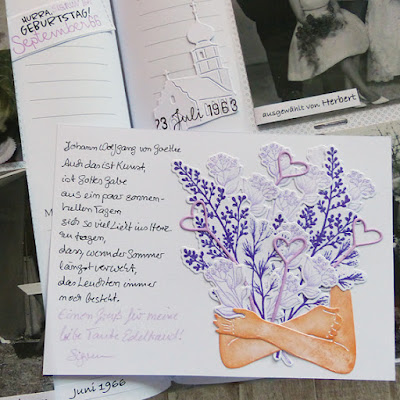 HURRA,
GEBURTSTAG!
September 66
23 Juli 1963
ausgewählt von Herbert
Johann Wolfgang von Goethe
Auch das ist Kunst,
ist Gottes Gabe
aus ein paar sonnen-
hellen Tagen
sich so viel Licht ins Herz
zu tragen,
dass, wenn der Sommer
längst verweht,
das Leuchten immer
noch besteht.
Einen Gruß für meine
liebe Tante Edeltraud!
Juni 1966